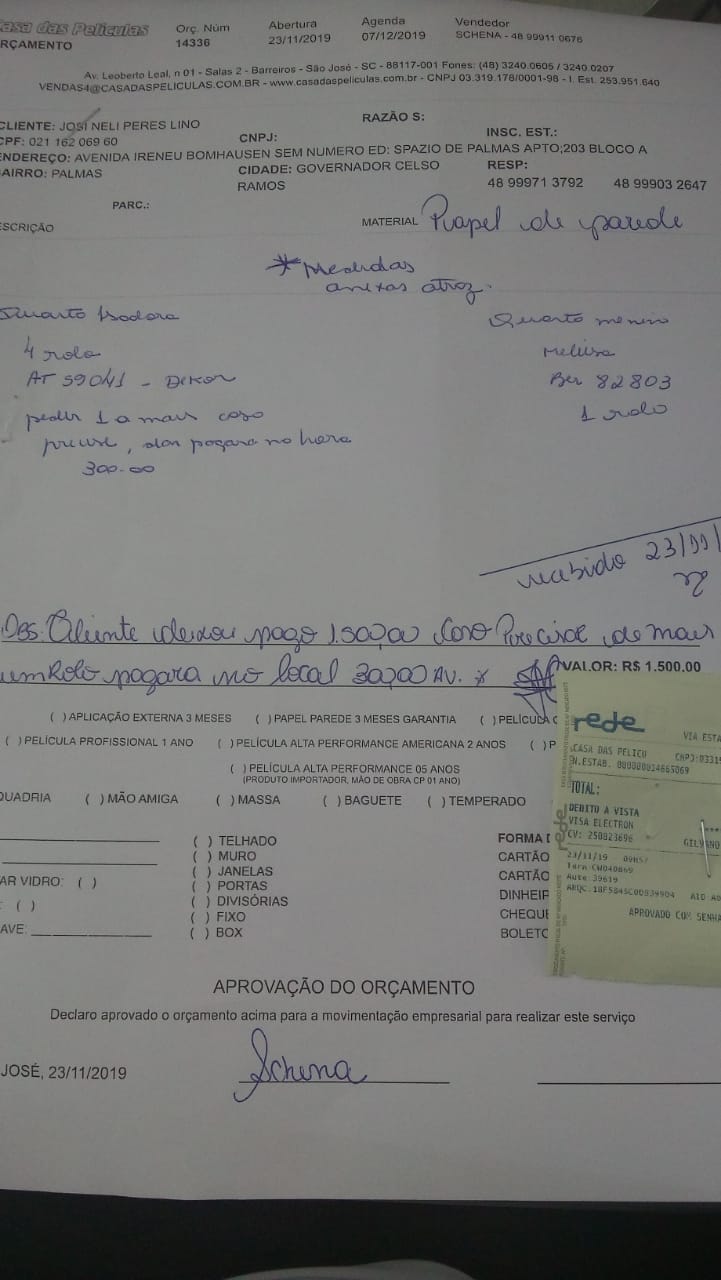 Casa das Películas
Orç. Núm
Abertura
Agenda
Vendedor
RÇAMENTO
14336
23/11/2019
07/12/2019
SCHENA - 48 99911 0676
Av. Leoberto Leal, n 01 - Salas 2 - Barreiros - São José - SC - 88117-001 Fones: (48) 3240.0605 / 3240.0207
VENDAS4@CASADASPELICULAS.COM.BR - www.casadaspeliculas.com.br - CNPJ 03.319.178/0001-98 - I. Est. 253.951.640
RAZÃO S:
CLIENTE: JOSI NELI PERES LINO
CPF: 021 162 069 60
CNPJ:
INSC. EST.:
ENDEREÇO: AVENIDA IRENEU BOMHAUSEN SEM NUMERO ED: SPAZIO DE PALMAS APTO;203 BLOCO A
AIRRO: PALMAS
CIDADE: GOVERNADOR CELSO RAMOS
RESP:
48 99971 3792
48 99903 2647
PARC.:
ESCRIÇÃO
MATERIAL Papel de parede
*Medidas
anexas atroz.
Quarto Isadora
4 rolo
AT 59041 - Dekor
pedir 1 a mais caso
precise, dan pagara na hora
300.00
Quarto menino
Melissa
Ber 82803
1 rolo
recebido 23/11/
Obs. Cliente deixou pago 1.500,00 Caso Precise de mais
um Rolo pagara no local 300,00 AV. x
VALOR: R$ 1.500.00
( ) APLICAÇÃO EXTERNA 3 MESES
( ) PAPEL PAREDE 3 MESES GARANTIA
( ) PELÍCULA
( ) PELÍCULA PROFISSIONAL 1 ANO
( ) PELÍCULA ALTA PERFORMANCE AMERICANA 2 ANOS
( ) P
( ) PELÍCULA ALTA PERFORMANCE 05 ANOS
(PRODUTO IMPORTADOR, MÃO DE OBRA CP 01 ANO)
QUADRIA
( ) MÃO AMIGA
( ) MASSA
( ) BAGUETE
( ) TEMPERADO
( ) TELHADO
( ) MURO
( ) JANELAS
( ) PORTAS
( ) DIVISÓRIAS
( ) FIXO
( ) BOX
AR VIDRO: ( )
: ( )
AVE:
FORMA D
CARTÃO
CARTÃO
DINHEIR
CHEQUE
BOLETO
rede
VIA ESTA
CASA DAS PELICU
CNPJ:03319
N.ESTAB. 000000014665069
TOTAL:
DEBITO A VISTA
VISA ELECTRON
CV: 250823696
GILVANO
23/11/19 09H57
Term CW040869
Auto 39619
ARQC. 18F5845C00839904
APROVADO COM SENHA
APROVAÇÃO DO ORÇAMENTO
Declaro aprovado o orçamento acima para a movimentação empresarial para realizar este serviço
JOSÉ, 23/11/2019
Schena